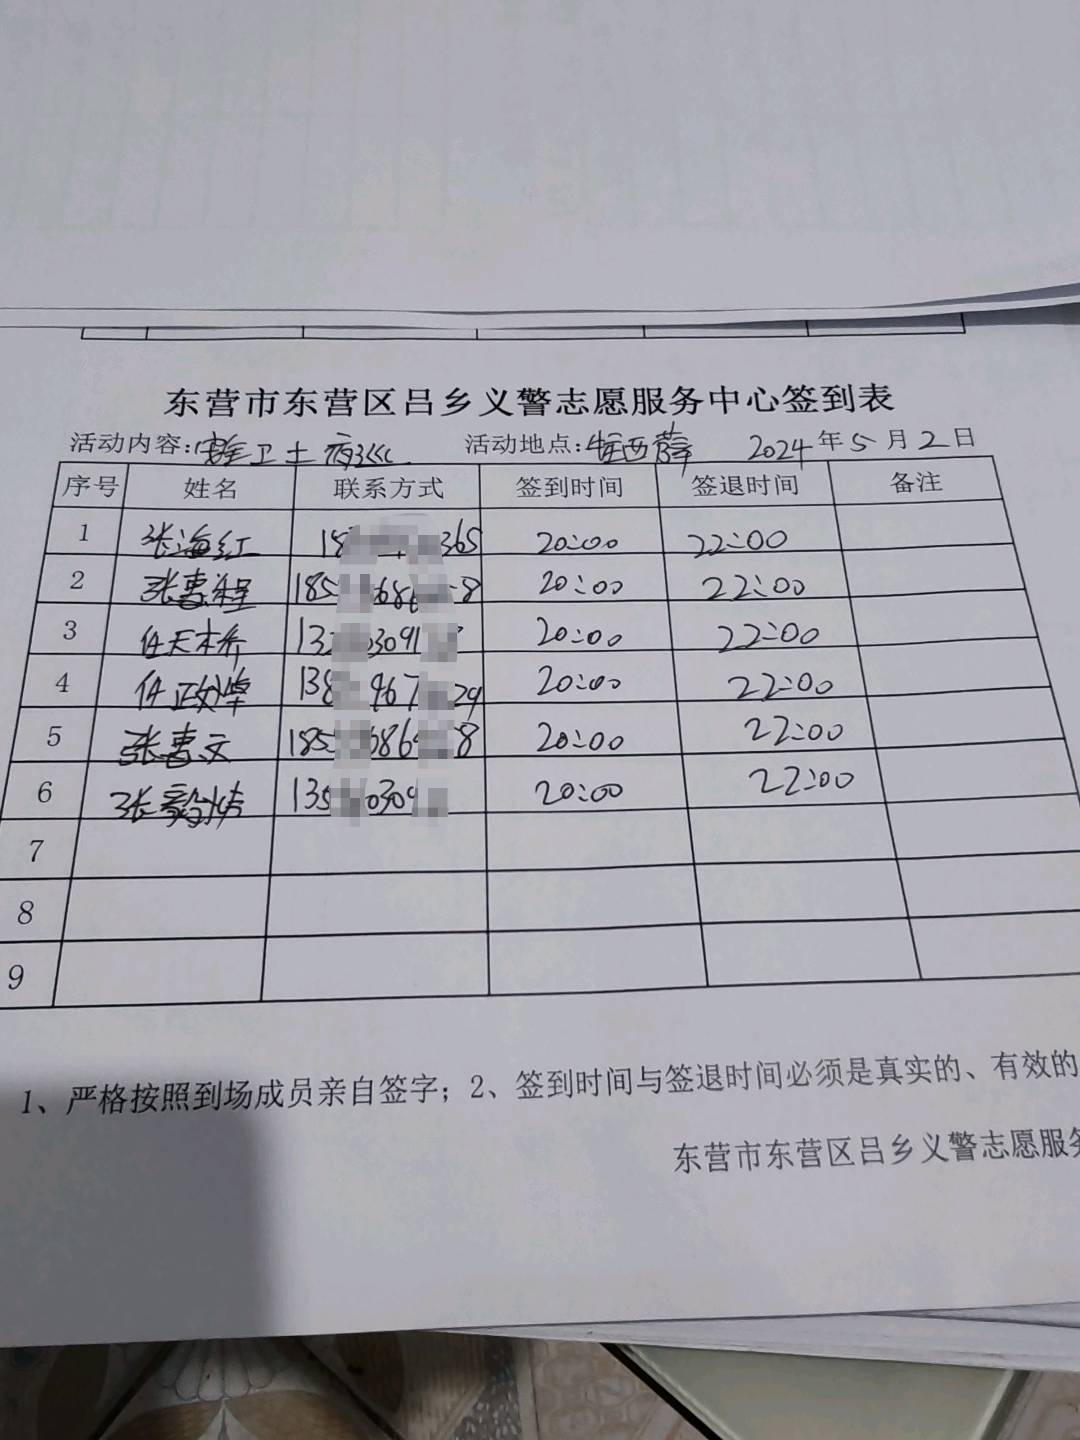 东营市东营区吕乡义警志愿服务中心签到表
活动内容: 卫士夜巡 活动地点: 西薛 2024年5月2日
序号 姓名 联系方式 签到时间 签退时间 备注
1 张海红 18 365 20:00 22:00
2 张惠程 185 686 8 20:00 22:00
3 任天乔 13 0309 20:00 22:00
4 任政 138 967 29 20:00 22:00
5 张惠文 185 686 8 20:00 22:00
6 张毅 135 0309 20:00 22:00
7
8
9
1、严格按照到场成员亲自签字；2、签到时间与签退时间必须是真实的、有效的
东营市东营区吕乡义警志愿服务